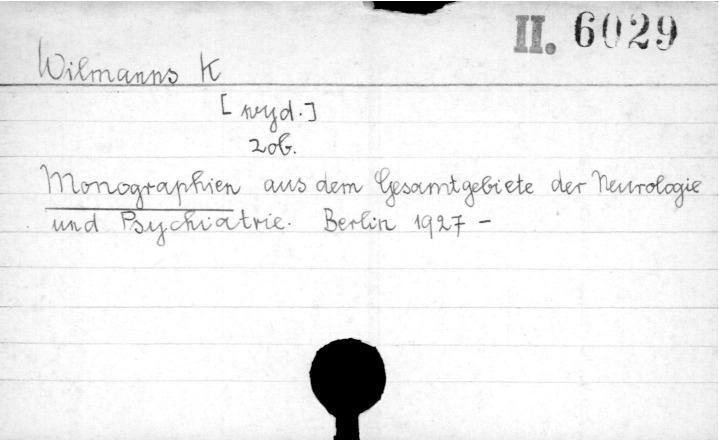 II. 6029
Wilmanns K
[wyd.]
zob.
Monographien aus dem Gesamtgebiete der Neurologie
und Psychiatrie. Berlin 1927 -